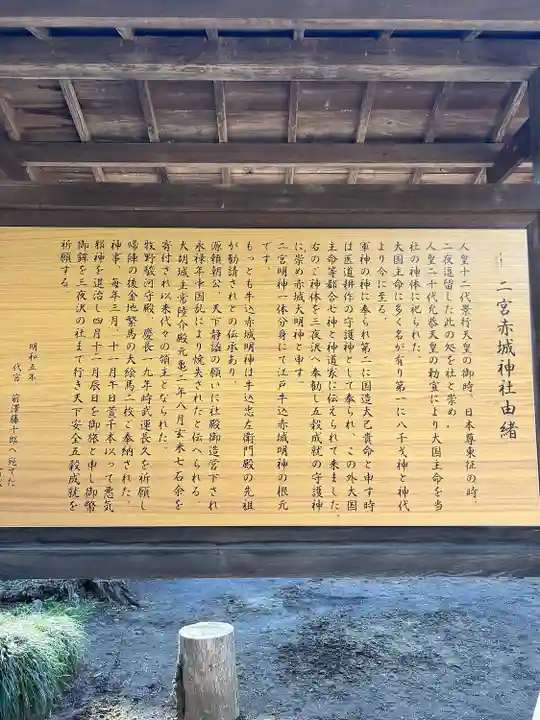 二宮赤城神社由緒
人皇十二代景行天皇の御時、日本尊東征の時、
二夜逗留した此の処を社と崇め、
人皇二十代允恭天皇の勅宣により大国主命を当
社の神体に祀られた。
大国主命に多く名が有り第一に八千戈神と神代
より今に至る。
軍神の神に奉られ第二に国造大已貴命と申す時
は医道耕作の守護神として奉られ、この外大国
主命等都合七神と神道家に伝えられて来ました。
右のご神体を三夜沢へ奉勧し五穀成就の守護神
に崇め赤城大明神と申す。
二宮明神一体分身にて江戸牛込赤城明神の根元
です。
もっとも牛込赤城明神は牛込忠左衛門殿の先祖
が勧請されとの伝承あり。
源頼朝公、天下静謐の願いに社殿御造営下され
永禄年中国乱により焼失されたと伝へられる
大胡城主常陸介殿元亀二年八月玄米七石余を
寄付され以来代々の領主となられた。
牧野駿河守殿、慶長一九年時武運長久を祈願し
帰陣の後金地繋馬の大絵馬二枚ご奉納された。
神事、毎年三月、十一月午日萱千本以って悪気
邪神を退治し四月十二月辰日を御旅と申し御幣
御鉾を三夜沢の社まで行き天下安全五穀成就を
祈願する。
明和五年
代官　前澤藤十郎へ宛てた